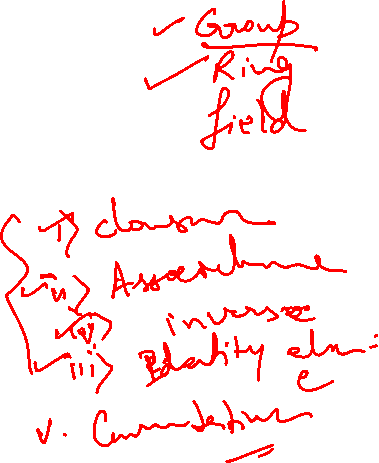 Group
Ring
field
i) closure
ii) Associative
iv) inverse
iii) Identity elem:
e
v. Commutative